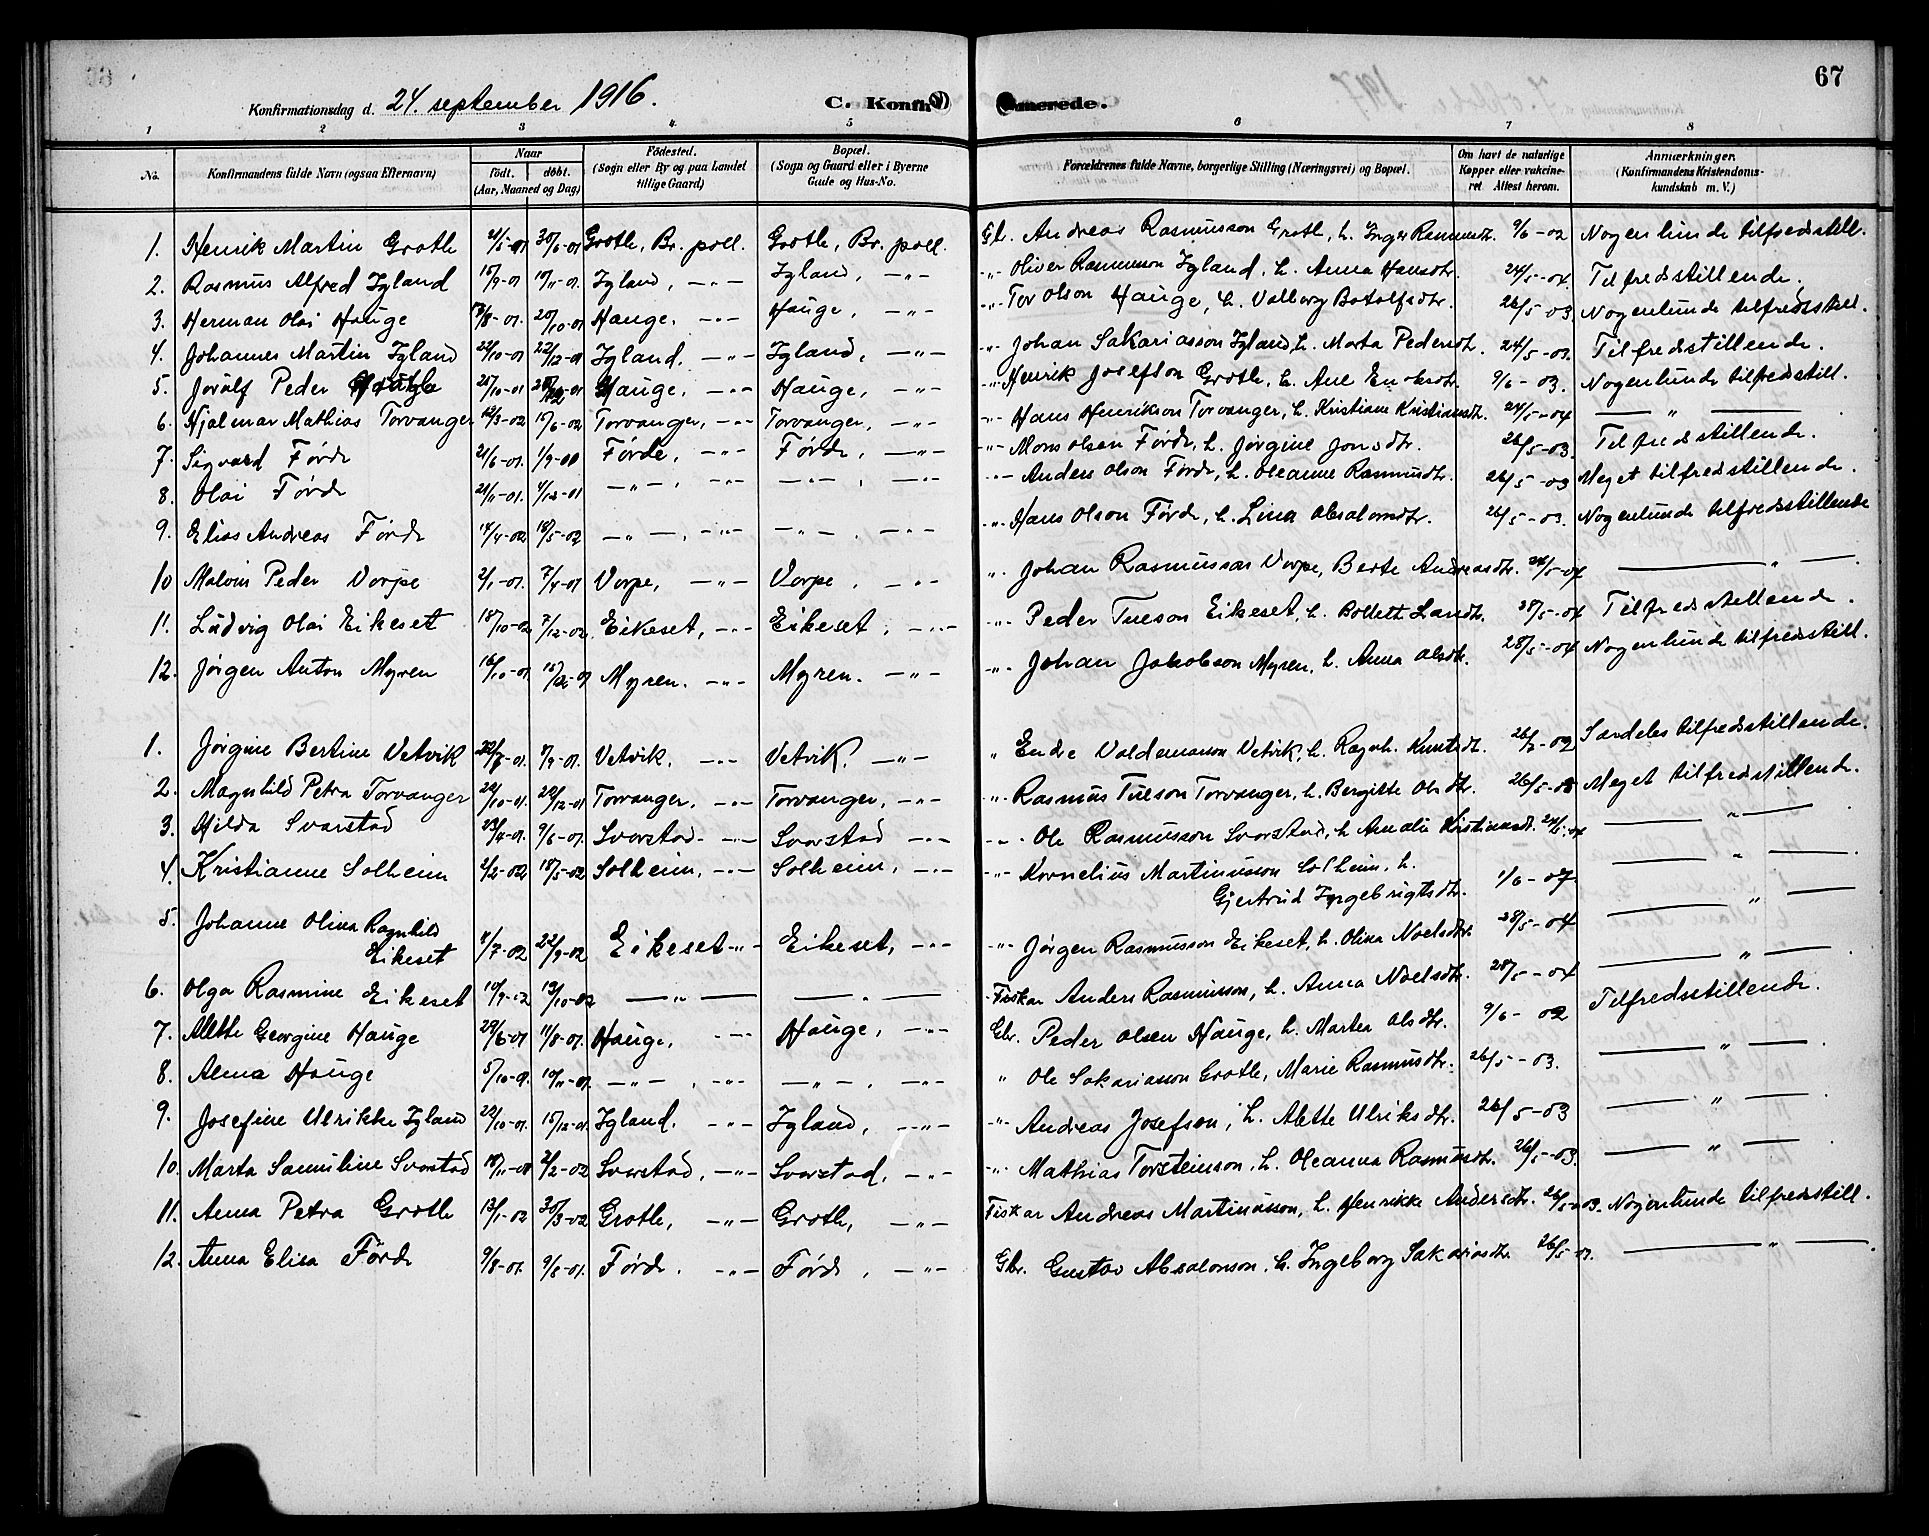 67
Konfirmationsdag d. 24. september 1916. C. Konfirmerede.
1 2 3 4 5 6 7 8
No. Konfirmandens fulde Navn (ogsaa Efternavn) Naar født. døbt. (Aar, Maaned og Dag) Fødested. (Sogn eller By og paa Landet tillige Gaard) Bopæl. (Sogn og Gaard eller i Byerne Gade og Hus-No. Forældrenes fulde Navne, borgerlige Stilling (Næringsvei) og Bopæl. Om havt de naturlige Kopper eller vakcineret. Attest herom. Anmærkninger. (Konfirmandens Kristendomskundskab m. V.)
1. Henrik Martin Grotle 30/6-01 Grotle, Br. poll. Grotle, Br. poll. Gbr. Andreas Rasmusson Grotle, h. Inger Rasmusdtr. 9/6-02 Nogenlunde tilfredsstill.
2. Rasmus Alfred Igland 15/9-01 10/11-01. Igland, -"- Igland, -"- -"- Oliver Rasmusson Igland, h. Anna Hansdtr. 24/5-04. Tilfredstillende.
3. Herman Olai Hauge 20/10-01 Hauge, -"- Hauge, -"- -"- Tor Olson Hauge, h. Valborg Botolfsdtr. 26/5-03 Nogenlunde tilfredsstill.
4. Johannes Martin Igland 22/10-01 22/12-01 Igland. -"- Igland, -"- -"- Johan Sakariasson Igland, h. Marta Pedersdt. 24/5-03. Tilfredstillende.
5. Jorulf Peder 25/10-01 Hauge, -"- Hauge, -"- -"- Henrik Josefson Grotle, h. Ane Enoksdtr. 9/6-03. Nogenlunde tilfredsstill.
6. Hjalmar Mathias Torvanger 12/3-02 15/6-02 Torvanger, -"- Torvanger, -"- -"- Hans Henrikson Torvanger, h. Kristiane Kristiansdt. 24/5-04 — " —
7. Sigvard Førde 21/6-01. 1/9-01 Førde, -"- Førde, -"- -"- Mons Olsen Førde, h. Jørgine Jonsdtr. 26/5-03. Tilfredsstillende.
8. Olai Førde 21/11-01. 4/12-01 -"-, -"- -"-, -"- -"- Anders Olson Førde, h. Oleanne Rasmusdtr. 26/5-03 Meget tilfredstillende.
9. Elias Andreas Førde 14/4-02 18/5-02 -"-, -"- -"-, -"- -"- Hans Olson Førde, h. Lina Absalomdtr. 26/5-03. Nogenlunde tilfredsstillende
10 Malvin Peder Vorpe 2/1-01. 7/4-01 Vorpe, -"- Vorpe, -"- " Johan Rasmusson Vorpe, Berte Andreasdtr. 24/5-04 — " —
11. Ludvig Olai Eikeset 18/10-02 7/12-02. Eikeset, -"- Eikeset, -"- -"- Peder Tueson Eikeset, h. Bollett Larsdtr. 28/5-04 Tilfredsstellende.
12. Jørgen Anton Myren 16/10-01. 15/12-01 Myren. -"- Myren. -"- -"- Johan Jakobson Myren, h. Anna Olsdtr. 28/5-04 Nogenlunde tilfredsstill.
1. Jørgine Bertine Vetvik Vetvik. -"- Vetvik. -"- " Endre Valdemarson Vetvik, h. Ragnh. Knutsdt. Særdeles tilfredsstillende.
2. Magnhild Petra Torvanger 24/10-01. 22/12-01 Torvanger. -"- Torvanger, -"- -"- Rasmus Tueson Torvanger, h. Bergitte Olsdtr. 26/5-03 Meget tilfredsstillende.
3. Hilda Svarstad 23/4-01. 9/6-01. Svorstad. -"- Svorstad -"- -"- Ole Rasmusson Svorstad, h Amalie Kristiansdt. — " —
4. Kristianne Solheim 2/2-02 18/5-02 Solheim, -"- Solheim, -"- -"- Kornelius Martinusson Solheim, h. — " —
Gjertrud Ingebrigtsdtr. 1/6-07.
5. Johanne Olina Ragnhild — " —
Eikeset 11/7-02 22/9-02 Eikeset -"- Eikeset, -"- -"- Jørgen Rasmusson Eikeset, h. Olina Noelsdtr. 28/5-04
6. Olga Rasmine Eikeset 10/9-02 19/10-02 — " — — " — Fiskar Anders Rasmusson, h. Anna Noelsdtr. 28/5-04 — " —
7. Alette Georgine Hauge 29/6-01 11/8-01. Hauge, -"- Hauge, -"- Gbr. Peder Olsen Hauge, h. Marta Olsdtr. 9/6-02 Tilfredsstillende.
8. Alma Hauge 5/10-01. 10/11-01. -"-, -"- -"-, -"- " Ole Sakariasson Grotle, Marie Rasmusdtr. 26/5-03. — " —
9. Josefine Ulrikke Igland 22/10-01. 15/12-01. Igland. -"- Igland, -"- -"- Andreas Josefson, h. Alette Ulriksdtr. 26/5-03 — " —
10. Marta Samuline Svorstad 2/2-02 Svorstad, -"- Svorstad, -"- -"- Mathias Torsteinson, h. Oleanna Rasmusdtr. 26/5-03. — " —
11. Anna Petra Grotle 13/1-02 30/3-02 Grotle, -"- Grotle, -"- Fiskar Andreas Martinusson, h. Henrikke Andersdtr. 26/5-03. Nogenlunde tilfredsstill.
12. Anna Elisa Førde 9/8-01. Førde. -"- Førde, -"- Gbr. Gustav Absalonson, h. Ingeborg Sakariasdtr. — " —